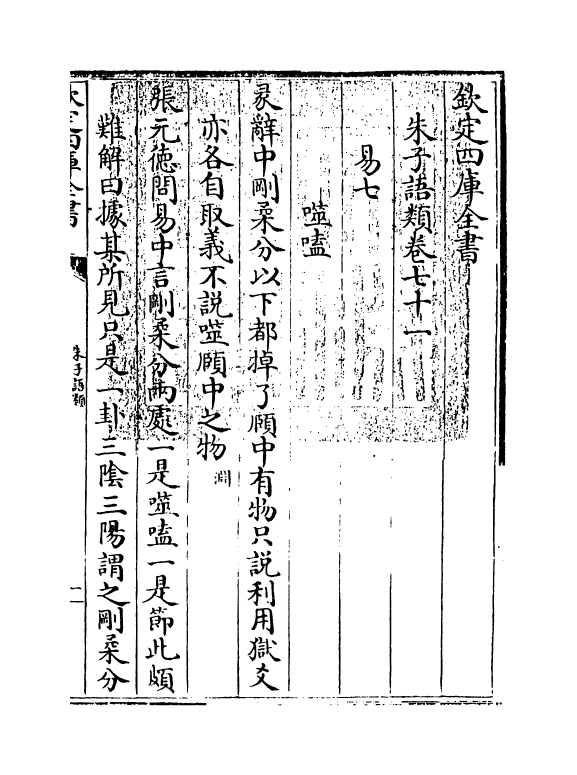 欽定四庫全書
朱子語類卷七十一
易七
噬嗑
彖辭中剛柔分以下都掉了頤中有物只説利用獄爻
亦各自取義不説噬頤中之物淵
張元德問易中言剛柔分兩處一是噬嗑一是節此頗
難解曰據某所見只是一卦三陰三陽謂之剛柔分
欽定四庫全書
朱子語類
一